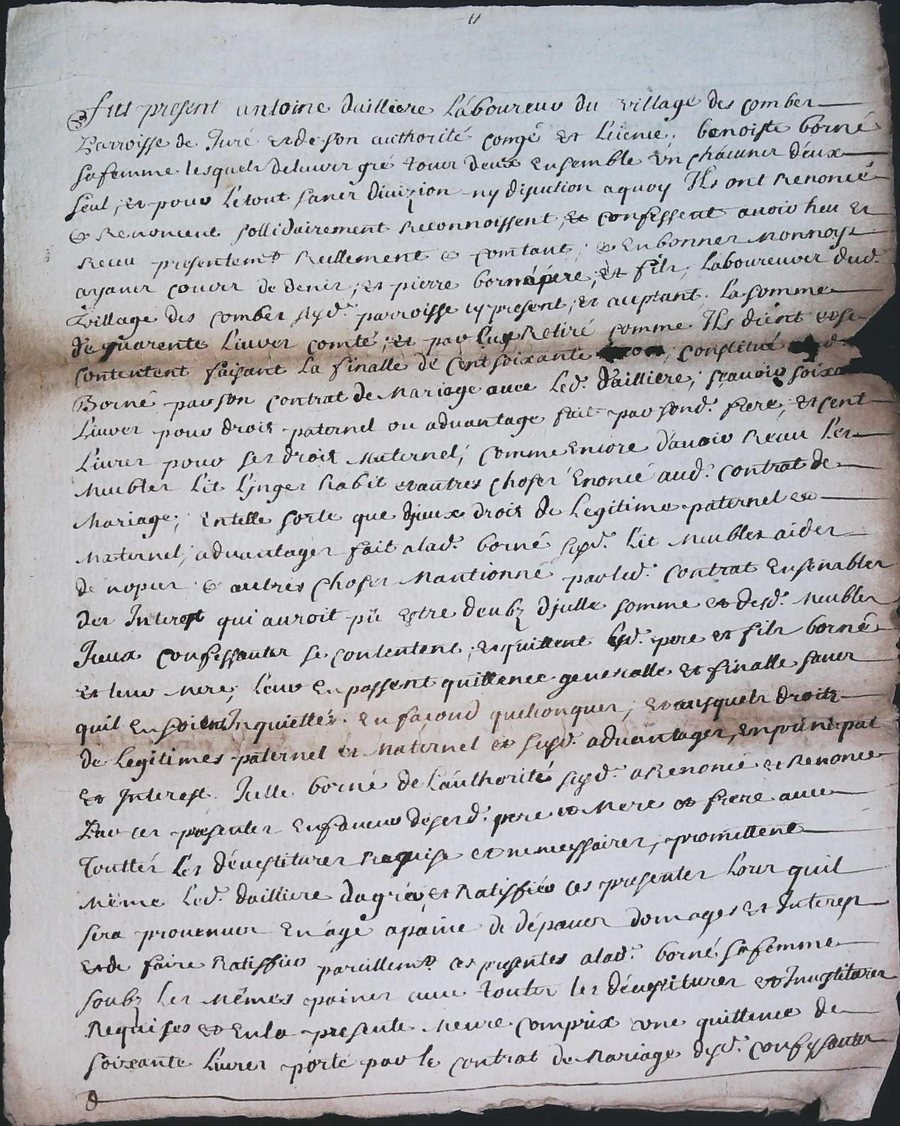 fut present antoine dailliere Laboureur du village des combes
Parroisse de Juré et de son authorité congé et Licence, benoiste borné
sa femme lesquels de leur gré tour deux Ensemble Un châcunes d'eux
seul, et pour Le tout sanes divizion ny disution a quoy Ils ont Renoncé
& Renoncent sollidairement Reconnoissent, et confessent avoir heu et
Receu presentemt Reellement & comtant, & En bonnes Monnoyes
ayants cours de denier, et pierre borné pere, et fils, Laboureurs dud.
Village des combes susd. parroisse cy present, et aceptant. La somme
de quarente Livres comté, et par Eux Retiré comme Ils dient et se
contentent faisant La finalle de Cent soixante constitué
Borné par son contrat de Mariage avec Led. d'ailliere, sçavoir soixa
Livres pour droit paternel ou advantage fait par sond. frere, et cent
Livres pour ses droits Maternel, comme Encore d'avoir Reseu Les
Meubles Lit Linges habit et autres choses Enoncé aud. Contrat de
Mariage, En telle sorte que d'iceux droit de Legitime paternel et
Maternel, advantages fait a lad. borné susd. Lit Meubles aides
de nopces & autres choses Mantionné par led. contrat Ensembles
des Interest qui auroit pû Estre deubz d'jcelle somme et desd. Meubles
Jceux confessantes se contentent, et quittent Lesd. pere et fils borné
et leur Mere, Leur En passent quittence generalle et finalle sanes
quil En soient Inquiettés. En facond quelconques, Et ausquels droits
de Legitimes paternel et Maternel et susd. advantages, En principal
et Interest. Jcelle borné de L'authorité susd. a Renoncé et Renonce
Par ces presentes En faveur desesd. pere et Mere et frere avec
Touttes Les dévestitures Requise et nenessaires, promettent
Même Led. dailliere d'agreer et Ratiffier ces presentes Lors quil
sera provenues En âge a paine de dépans domages et Interest
et de faire Ratiffier pareillemt ces presentes a lad. borné sa femme
soubz Les Mêmes paines avec touttes Les dévestitures et Investitures
Requises et En la presente Meure comprix une quittence de
soixante Livres porté par le contrat de Mariage desd. confessantes